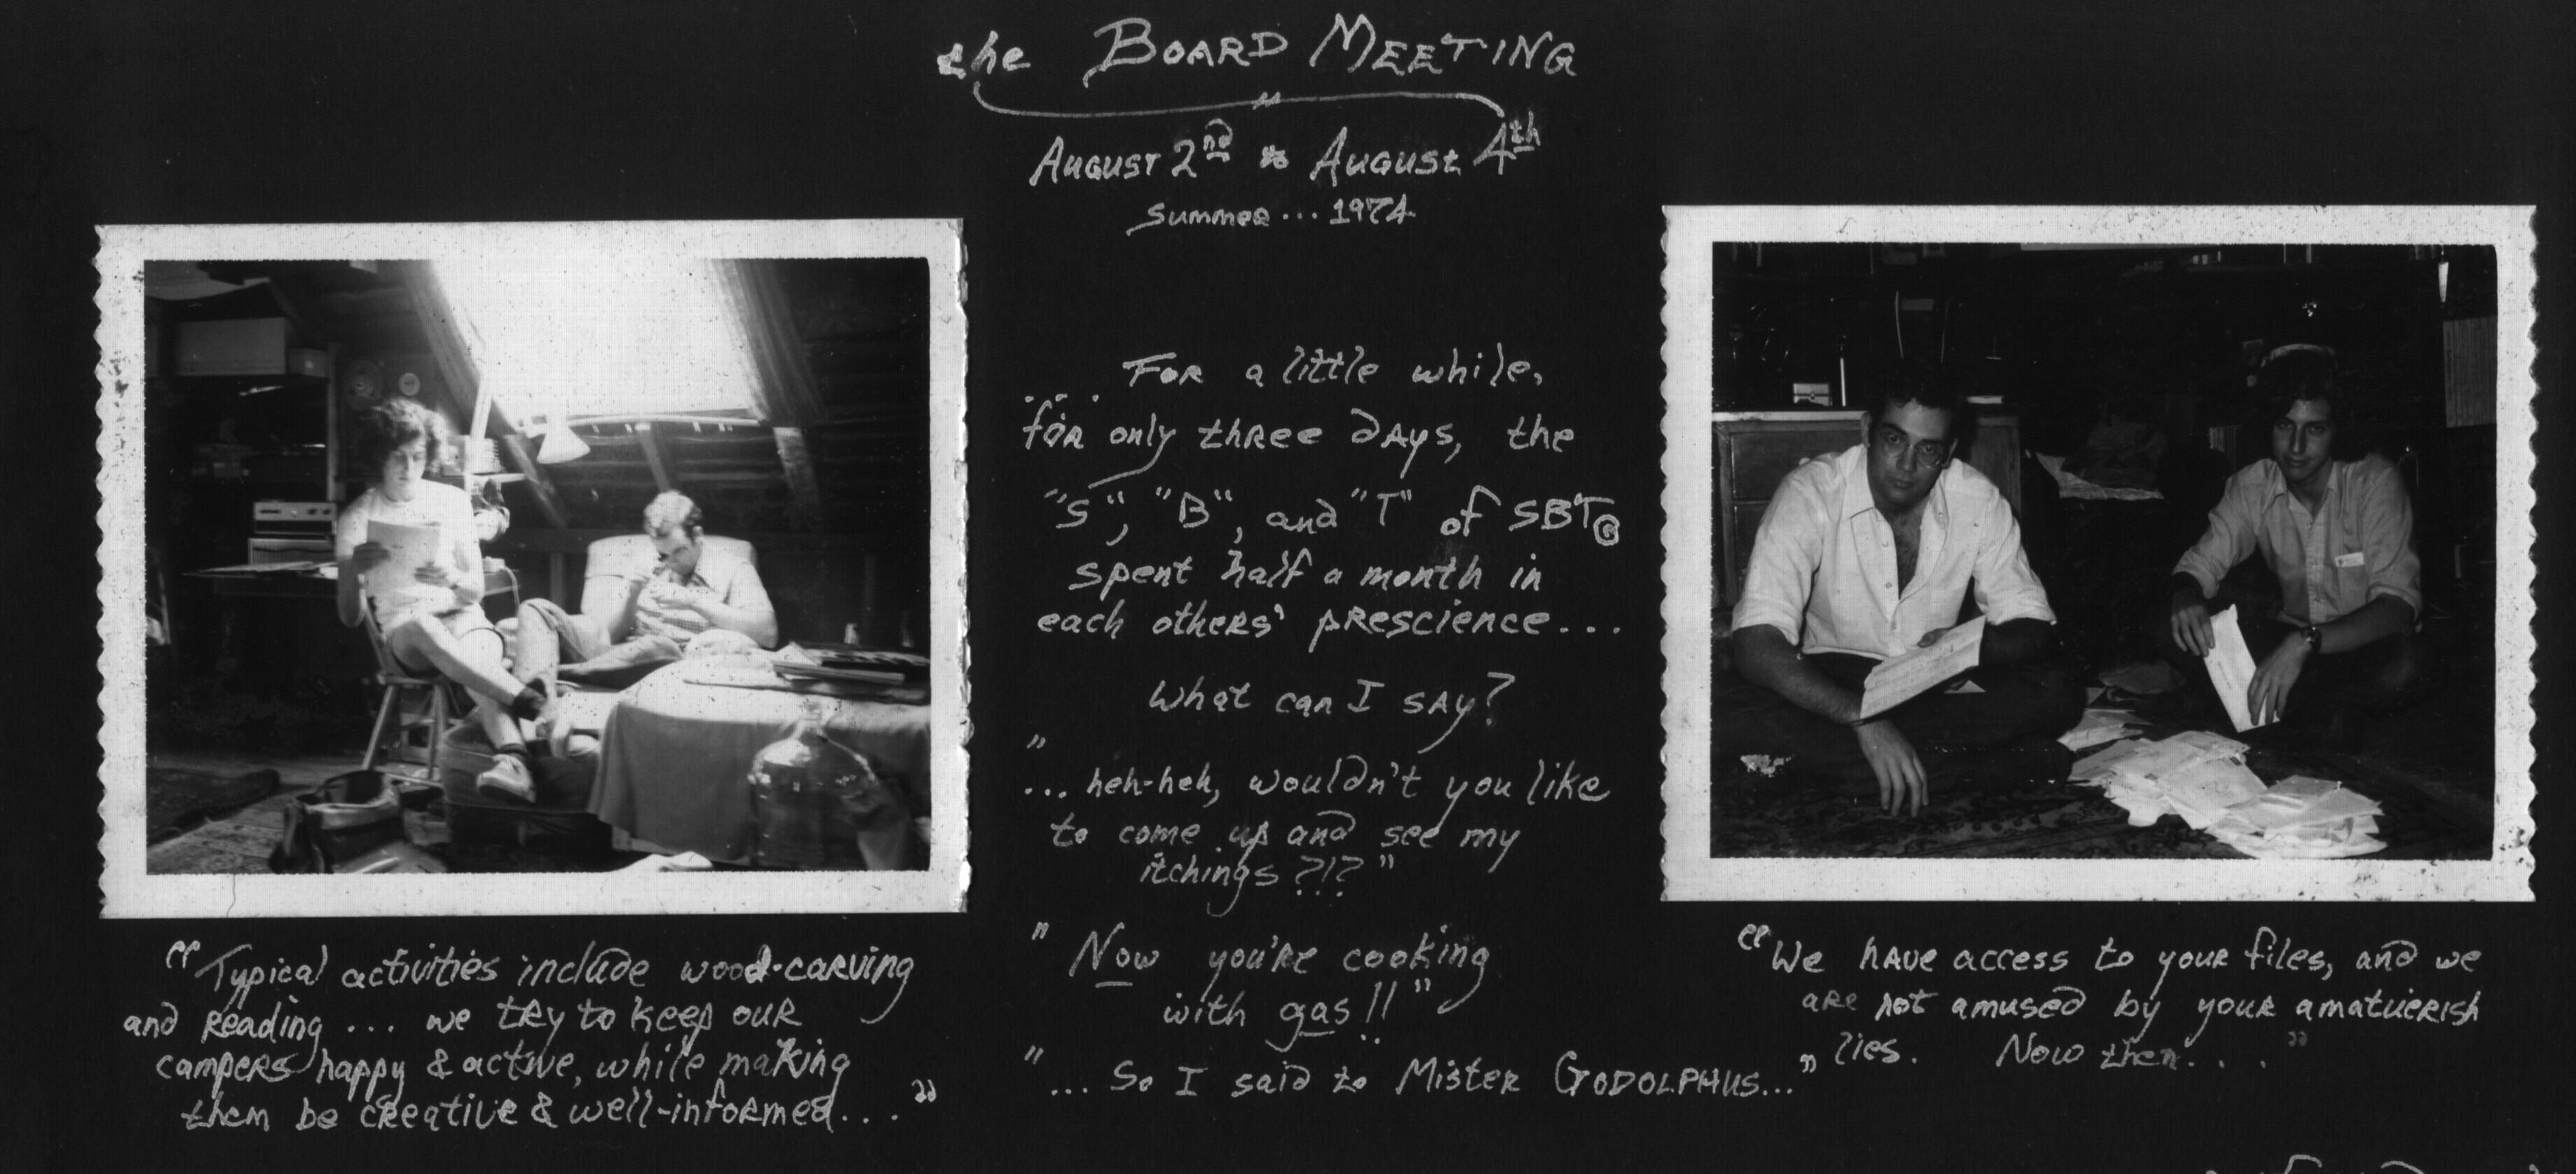 the BOARD MEETING
AUGUST 2nd to AUGUST 4th
Summer... 1974
... FOR a little while,
for only three DAYS, the
"S", "B", and "T" of SBT@
spent half a month in
each others' prescience...
What can I SAY?
"... heh-heh, wouldn't you like
to come up and see my
itchings ?!?"
"Now you're cooking
with gas!!"
"... So I said to Mister GODOLPHUS..."
"Typical activities include wood-carving
and reading ... we try to keep our
campers happy & active, while making
them be creative & well-informed...."
"We have access to your files, and we
are not amused by your amatuerish
lies. Now then...."